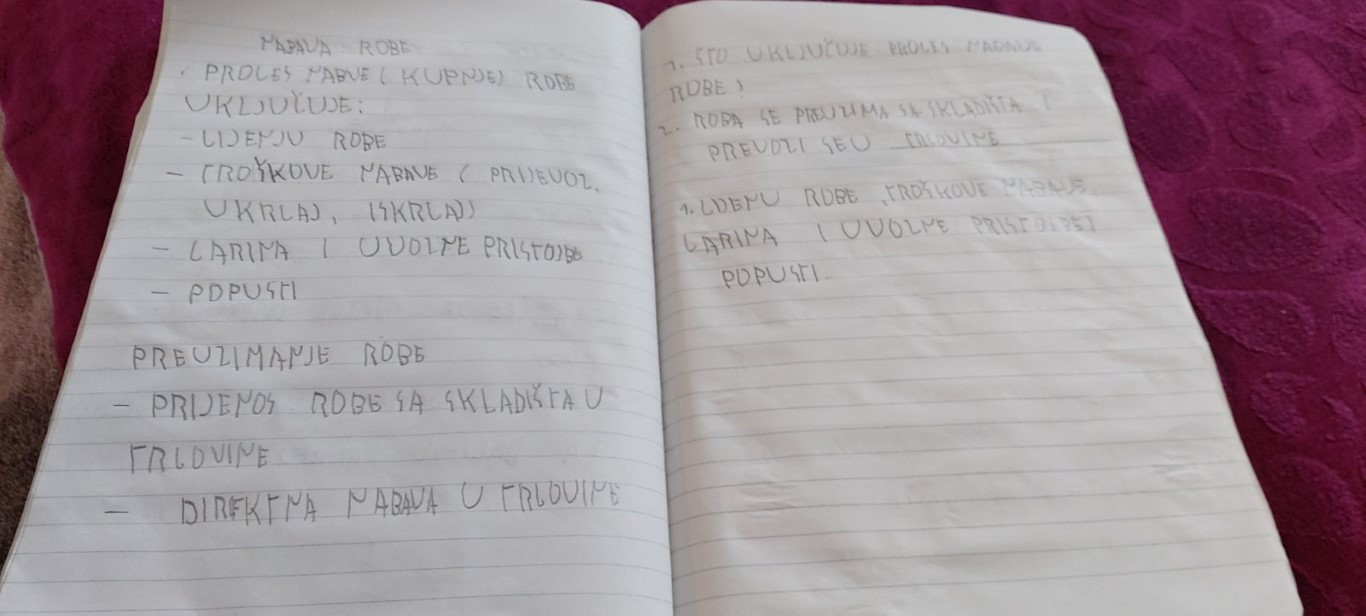 NABAVA ROBE
• PROCES NABVE ( KUPNJE) ROBE
UKLJUČUJE:
- CIJENJU ROBE
- TROŠKOVE NABAVE ( PRIJEVOZ,
UKRCAJ, ISKRCAJ)
- CARINA I UVOZNE PRISTOJBE
- POPUSTI
PREUZIMANJE ROBE
- PRIJENOS ROBE SA SKLADIŠTA U
TRGOVINE
- DIREKTNA NABAVA U TRGOVINE
1. ŠTO UKLJUČUJE PROCES NABAVE
ROBE?
2. ROBA SE PREUZIMA SA SKLADIŠTA I
PREVOZI SE U TRGOVINE
1. CJENU ROBE, TROŠKOVE NABAVE,
CARINA I UVOZNE PRISTOJBE I
POPUSTI.